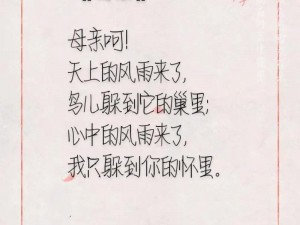 母亲呵!
天上的风雨来了,
鸟儿躲到它的巢里;
心中的风雨来了,
我只躲到你的怀里。